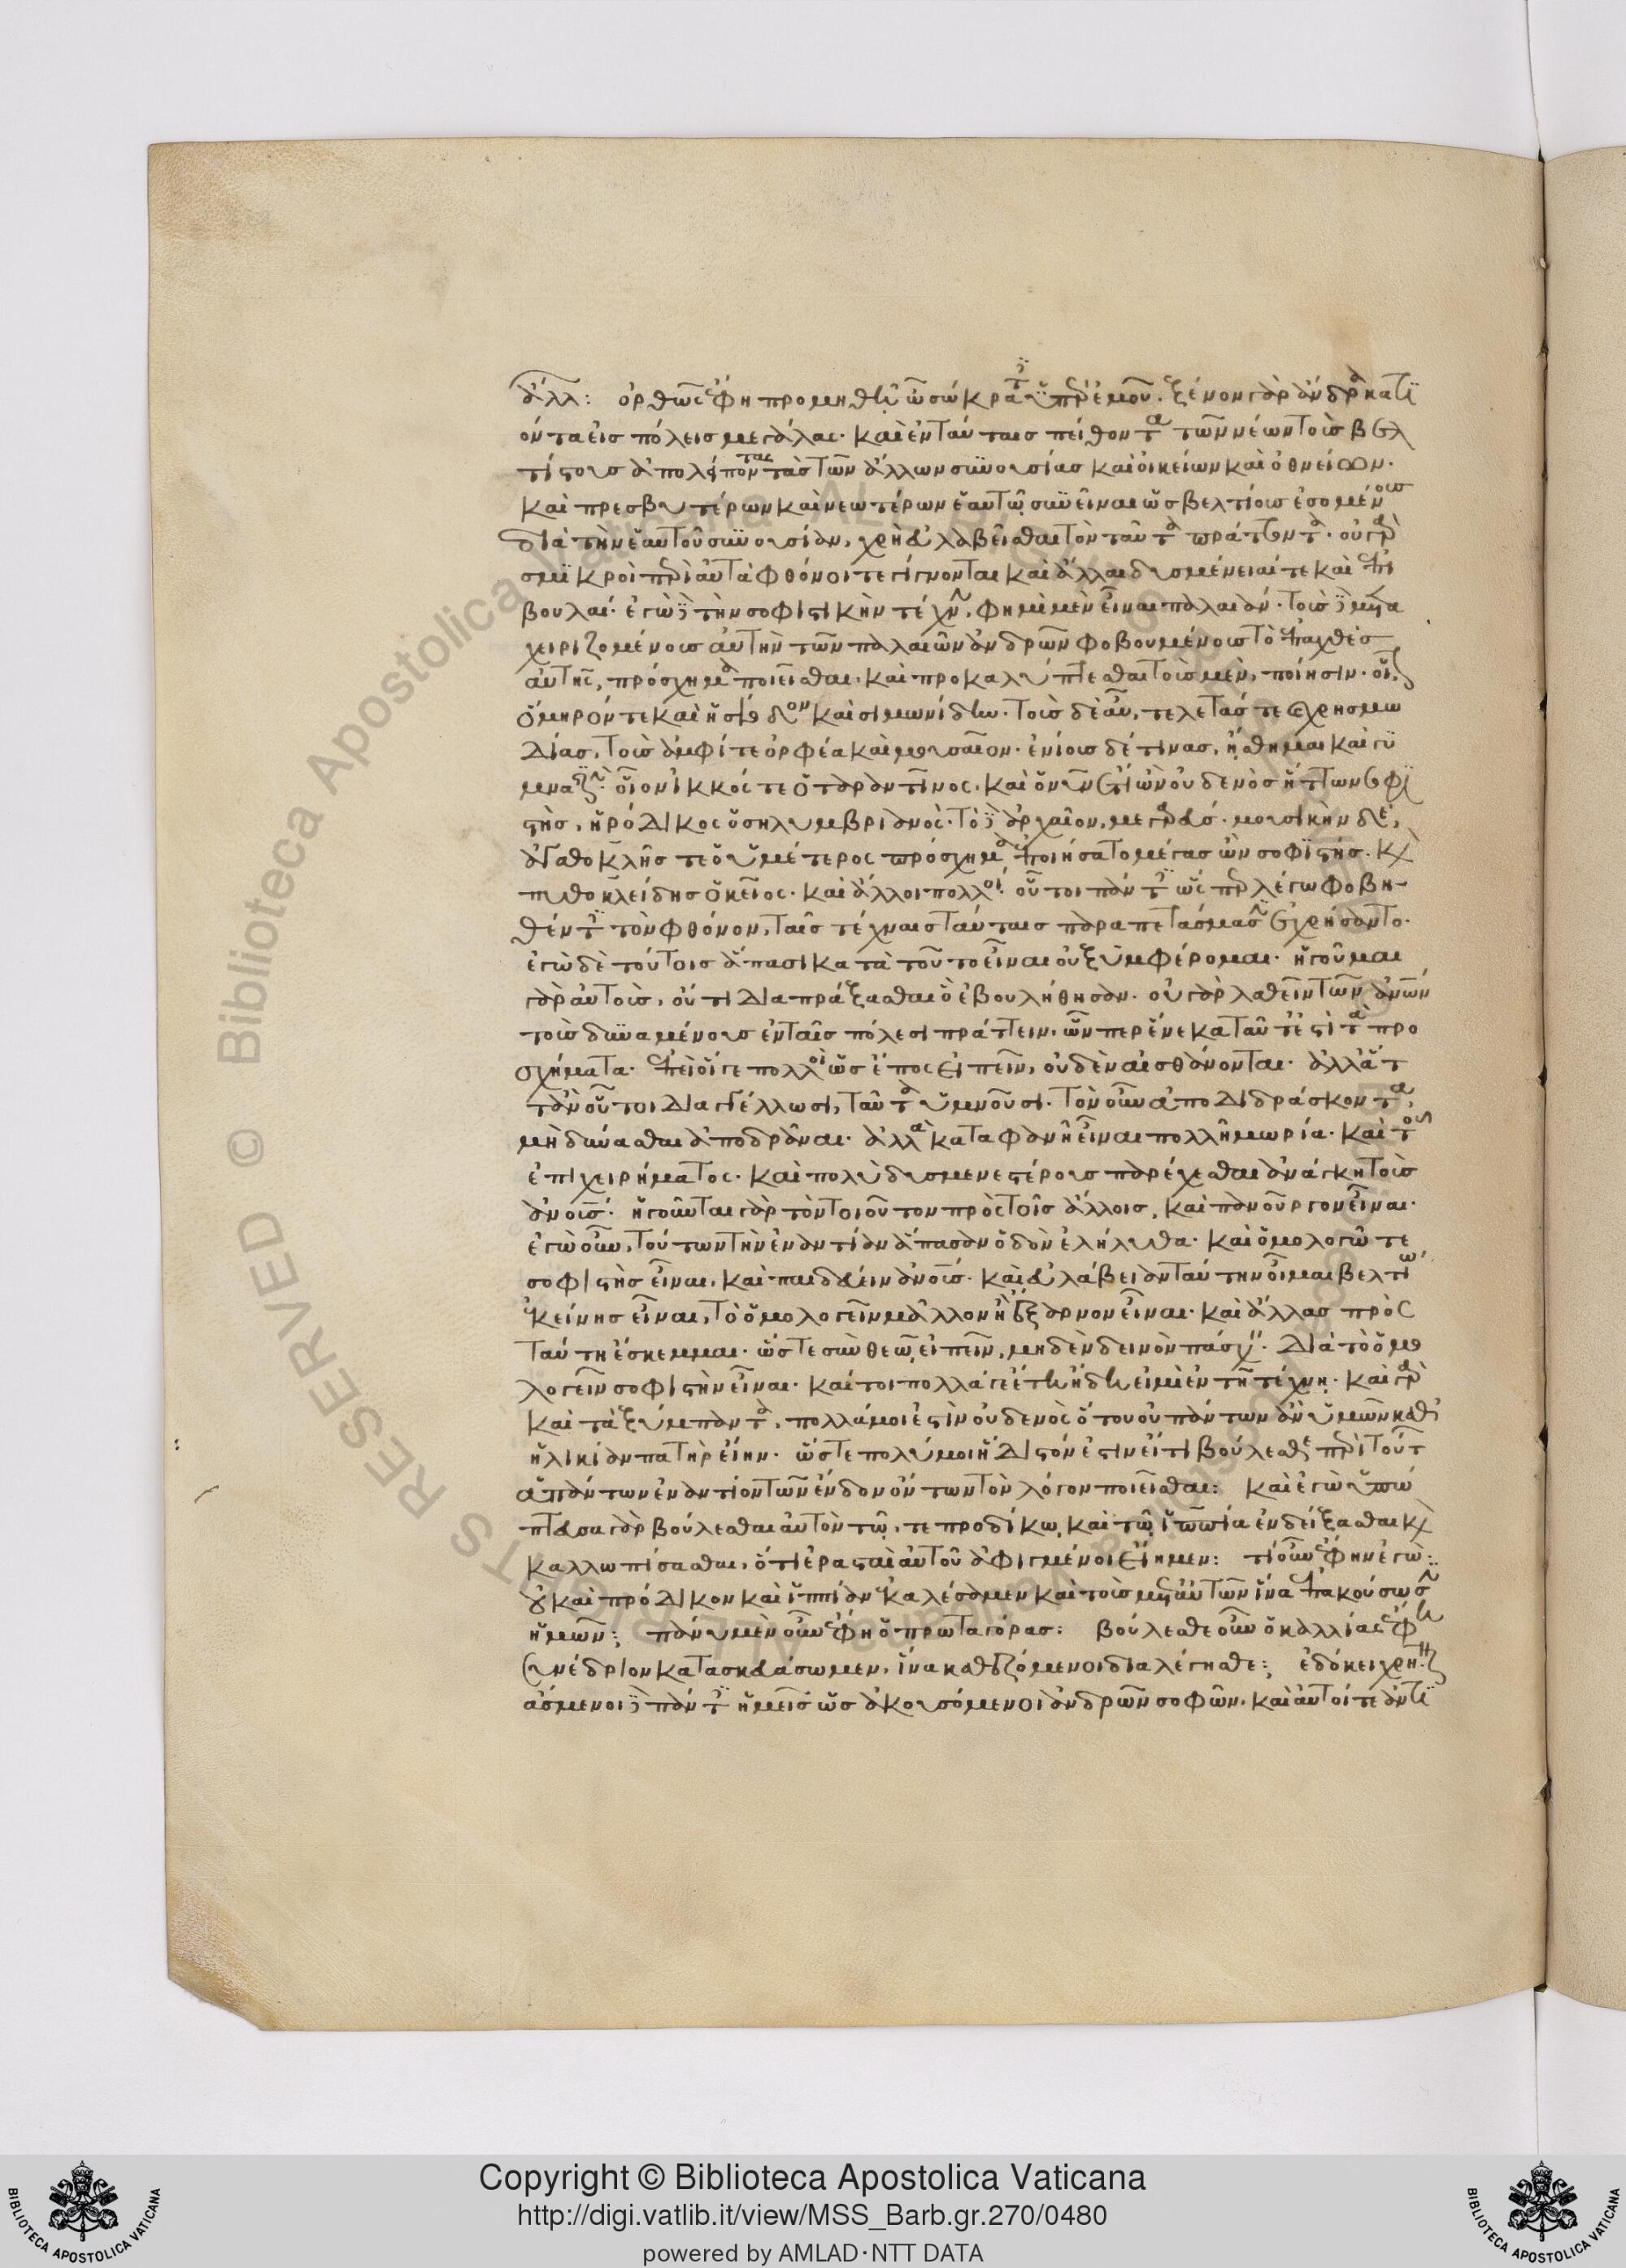 ἄλλ: ὀρθῶς ἔφη προμηθῇ ὦ σώκρατες ὑπὲρ ἐμοῦ. ξένον γὰρ ἄνδρα καὶ
ἰόντα εἰς πόλεις μεγάλας. καὶ ἐν ταύταις πείθοντα τῶν νέων τοὺς βελ
τίστους ἀπολείποντας τὰς τῶν ἄλλων συνουσίας καὶ οἰκείων καὶ ὀθνείων.
καὶ πρεσβυτέρων καὶ νεωτέρων ἑαυτῷ συνεῖναι ὡς βελτίους ἐσομένους
διὰ τὴν ἑαυτοῦ συνουσίαν, χρὴ εὐλαβεῖσθαι τὸν ταῦτα πράττοντα. οὐ γὰρ
σμικροὶ περὶ αὐτὰ φθόνοι τε γίγνονται καὶ ἄλλαι δυσμένειαί τε καὶ ἐπι
βουλαί. ἐγὼ δὲ τὴν σοφιστικὴν τέχνην, φημὶ μὲν εἶναι παλαιάν. τοὺς δὲ μετα
χειριζομένους αὐτὴν τῶν παλαιῶν ἀνδρῶν φοβουμένους τὸ ἐπαχθὲς
αὐτῆς, πρόσχημα ποιεῖσθαι. καὶ προκαλύπτεσθαι τοὺς μὲν, ποίησιν. οἷον
ὅμηρόν τε καὶ ἡσίοδον καὶ σιμωνίδην. τοὺς δὲ αὖ, τελετάς τε καὶ χρησμω
δίας, τοὺς ἀμφί τε ὀρφέα καὶ μουσαῖον. ἐνίους δέ τινας, ᾔσθημαι καὶ γυ
μναστικήν. οἷον ἴκκος τε ὁ ταραντῖνος. καὶ ὁ νῦν ἔτι ὢν οὐδενὸς ἥττων σοφι
στὴς, ἡρόδικος ὁ σηλυμβριανὸς. τὸ δὲ ἀρχαῖον, μεγαρεύς. μουσικὴν δὲ,
ἀγαθοκλῆς τε ὁ ὑμέτερος πρόσχημα ἐποιήσατο μέγας ὢν σοφιστής. καὶ
πυθοκλείδης ὁ κεῖος. καὶ ἄλλοι πολλοί. οὗτοι πάντες ὥσπερ λέγω φοβη-
θέντες τὸν φθόνον, ταῖς τέχναις ταύταις παραπετάσμασιν ἐχρήσαντο.
ἐγὼ δὲ τούτοις ἅπασι κατὰ τοῦτο εἶναι οὐ ξυμφέρομαι. ἡγοῦμαι
γὰρ αὐτοὺς, οὔ τι διαπράξασθαι ὃ ἐβουλήθησαν. οὐ γὰρ λαθεῖν τῶν ἀνων
τοὺς δυναμένους ἐν ταῖς πόλεσι πράττειν. ὧν περ ἕνεκα ταῦτ' ἐστὶ τὰ προ
σχήματα. ἐπεὶ οἵ γε πολλοὶ ὡς ἔπος εἰπεῖν, οὐδὲν αἰσθάνονται. ἀλλ' ἅττ
τ' ἂν οὗτοι διαγγέλλωσι, ταῦτα ὑμνοῦσι. τὸν οὖν ἀποδιδράσκοντα,
μὴ δύνασθαι ἀποδρᾶναι. ἀλλὰ καταφανῆ εἶναι πολλὴ μωρία. καὶ τοῦ
ἐπιχειρήματος. καὶ πολὺ δυσμενεστέρους παρέχεσθαι ἀνάγκη τοὺς
ἀνους. ἡγοῦνται γὰρ τὸν τοιοῦτον πρὸς τοῖς ἄλλοις, καὶ πανοῦργον εἶναι.
ἐγὼ οὖν, τούτων τὴν ἐναντίαν ἅπασαν ὁδὸν ἐλήλυθα. καὶ ὁμολογῶ τε
σοφιστὴς εἶναι. καὶ παιδεύειν ἀνους. καὶ εὐλάβειαν ταύτην οἶμαι βελτίω
ἐκείνης εἶναι, τὸ ὁμολογεῖν μᾶλλον ἢ ἔξαρνον εἶναι. καὶ ἄλλας πρὸς
ταύτῃ ἔσκεμμαι. ὥστε σὺν θεῷ εἰπεῖν, μηδὲν δεινὸν πάσχειν. διὰ τὸ ὁμο
λογεῖν σοφιστὴν εἶναι. καί τοι πολλά γε ἔτη ἤδη εἰμὶ ἐν τῇ τέχνῃ. καὶ γὰρ
καὶ τὰ ξύμπαντα, πολλά μοι ἐστὶν οὐδενὸς ὅτου οὐ πάντων ἂν ὑμῶν καθ'
ἡλικίαν πατὴρ εἴην. ὥστε πολύ μοι ἥδιστόν ἐστιν εἴ τι βούλεσθε περὶ τούτων
ἁπάντων ἐναντίον τῶν ἔνδον ὄντων τὸν λόγον ποιεῖσθαι: καὶ ἐγὼ ὑπώ
πτευσα γὰρ βούλεσθαι αὐτὸν τῷ, τε προδίκῳ καὶ τῷ ἱππίᾳ ἐνδείξασθαι καὶ
καλλωπίσασθαι, ὅτι ἐρασταὶ αὐτοῦ ἀφιγμένοι εἴημεν: τί οὖν ἔφην ἐγὼ:
οὐ καὶ πρόδικον καὶ ἱππίαν ἐκαλέσαμεν καὶ τοὺς μετ' αὐτῶν ἵνα ἐπακούσωσιν
ἡμῶν: πάνυ μὲν οὖν ἔφη ὁ πρωταγόρας: βούλεσθε οὖν ὁ καλλίας ἔφη
συνέδριον κατασκευάσωμεν, ἵνα καθιζόμενοι διαλέγησθε: ἐδόκει χρῆναι
ἀσμενοι δὲ πάντες ἡμεῖς ὡς ἀκουσόμενοι ἀνδρῶν σοφῶν. καὶ αὐτοί τε ἀντι
Copyright © Biblioteca Apostolica Vaticana
http://digi.vatlib.it/view/MSS_Barb.gr.270/0480
powered by AMLAD·NTT DATA